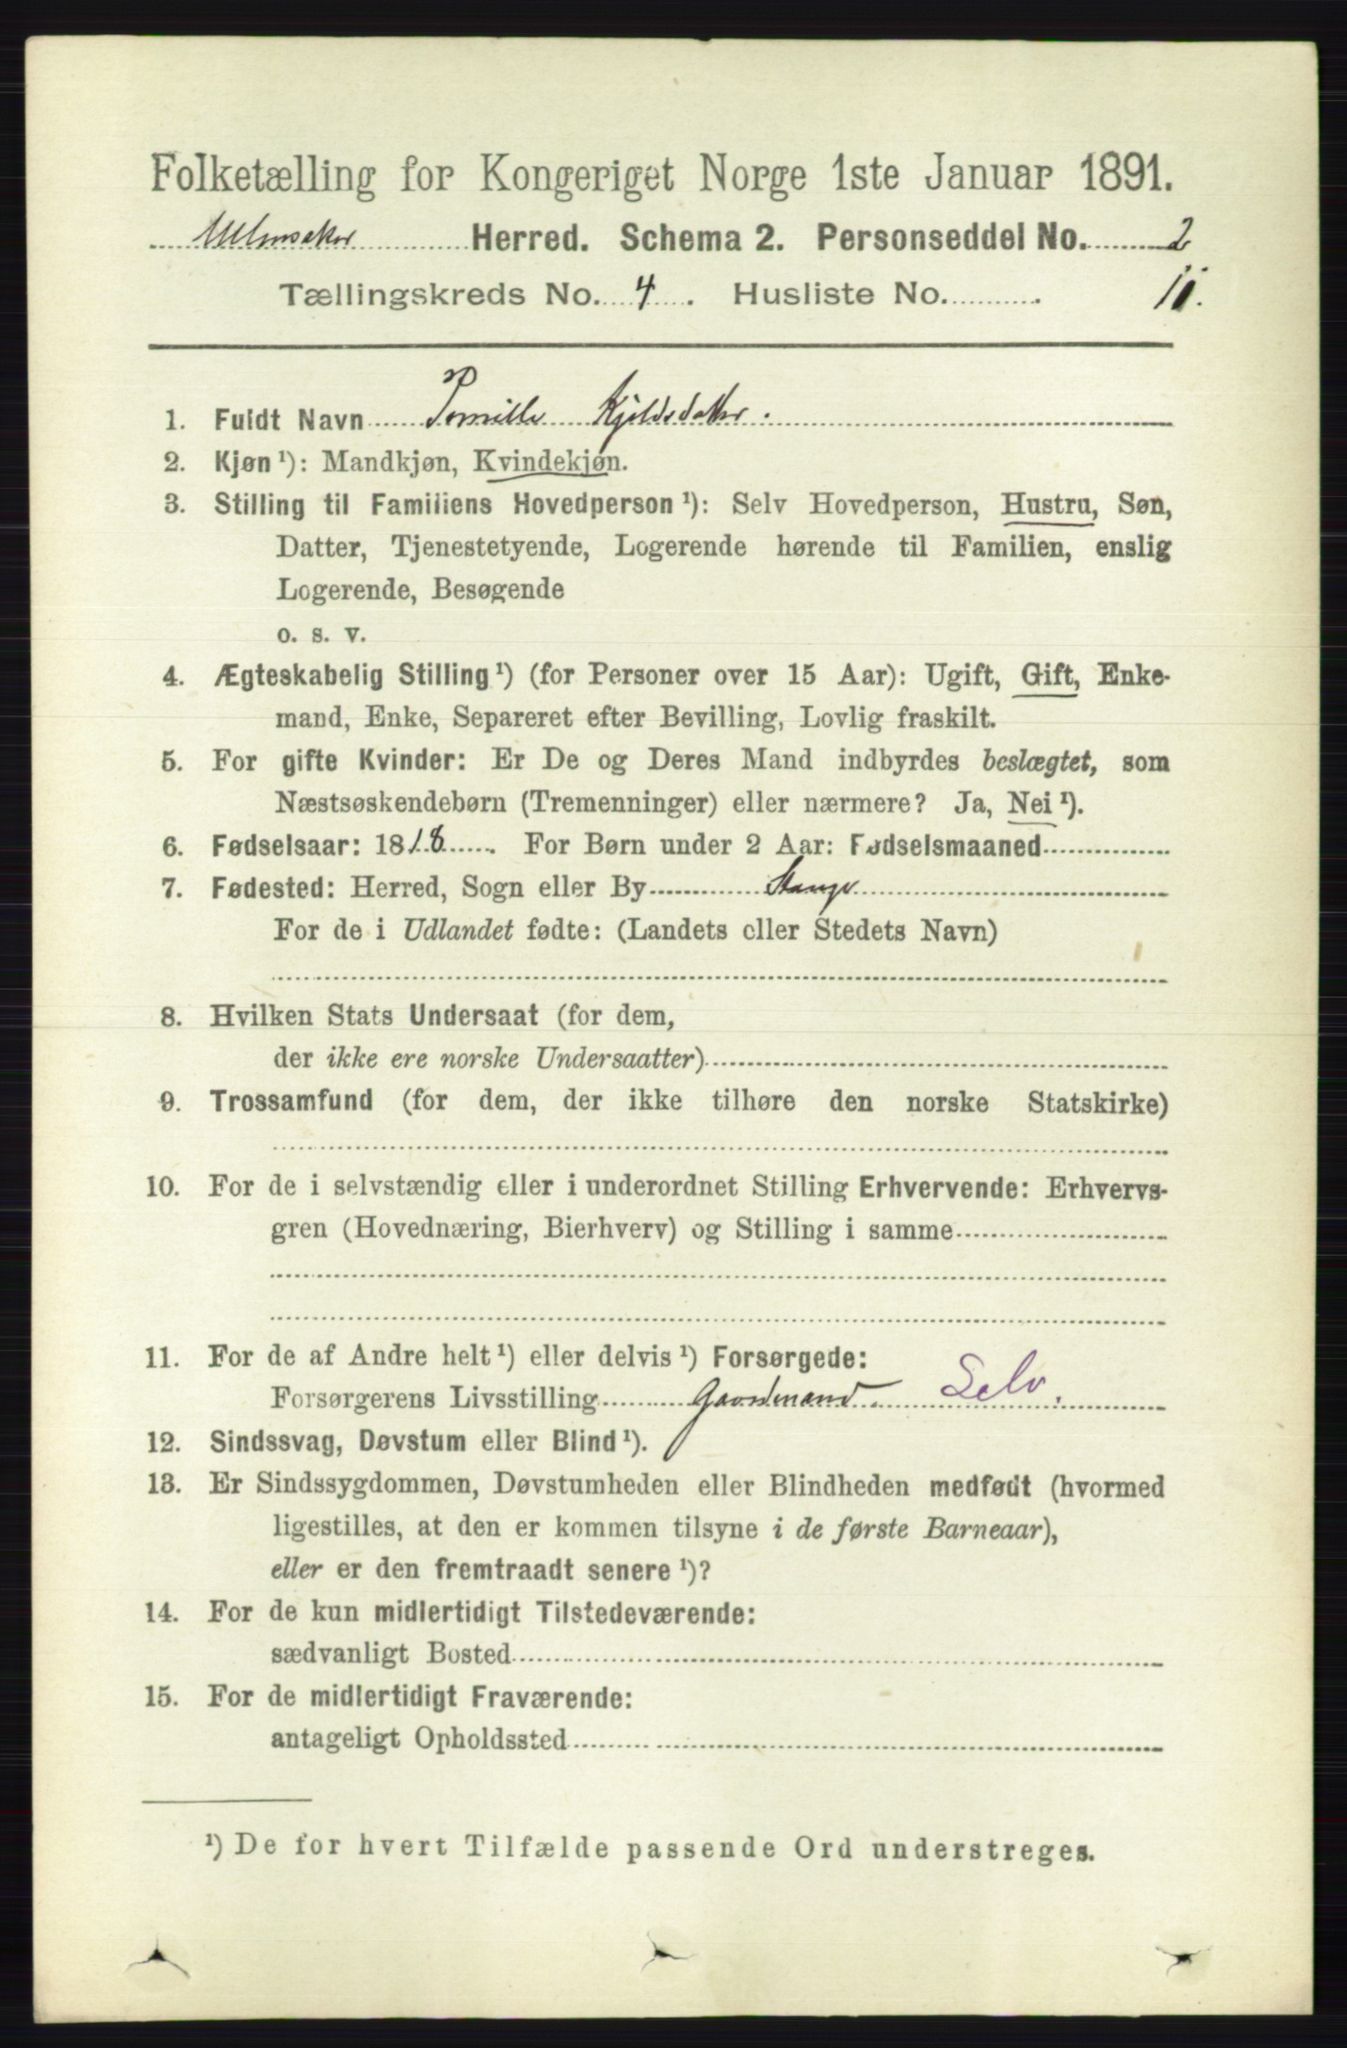 Folketælling for Kongeriget Norge 1ste Januar 1891.
Ullensaker Herred. Schema 2. Personseddel No. 2
Tællingskreds No. 4. Husliste No. 11.
1. Fuldt Navn Pernille Kjeldsdatter.
2. Kjøn ¹): Mandkjøn, Kvindekjøn.
3. Stilling til Familiens Hovedperson ¹): Selv Hovedperson, Hustru, Søn,
Datter, Tjenestetyende, Logerende hørende til Familien, enslig
Logerende, Besøgende
o. s. v.
4. Ægteskabelig Stilling ¹) (for Personer over 15 Aar): Ugift, Gift, Enke-
mand, Enke, Separeret efter Bevilling, Lovlig fraskilt.
5. For gifte Kvinder: Er De og Deres Mand indbyrdes beslægtet, som
Næstsøskendebørn (Tremenninger) eller nærmere? Ja, Nei ¹).
6. Fødselsaar: 1818. For Børn under 2 Aar: Fødselsmaaned
7. Fødested: Herred, Sogn eller By Stange
For de i Udlandet fødte: (Landets eller Stedets Navn)
8. Hvilken Stats Undersaat (for dem,
der ikke ere norske Undersaatter)
9. Trossamfund (for dem, der ikke tilhøre den norske Statskirke)
10. For de i selvstændig eller i underordnet Stilling Erhvervende: Erhvervs-
gren (Hovednæring, Bierhverv) og Stilling i samme
11. For de af Andre helt ¹) eller delvis ¹) Forsørgede:
Forsørgerens Livsstilling Gaardmand. Selv.
12. Sindssvag, Døvstum eller Blind ¹).
13. Er Sindssygdommen, Døvstumheden eller Blindheden medfødt (hvormed
ligestilles, at den er kommen tilsyne i de første Barneaar),
eller er den fremtraadt senere ¹)?
14. For de kun midlertidigt Tilstedeværende:
sædvanligt Bosted
15. For de midlertidigt Fraværende:
antageligt Opholdssted
¹) De for hvert Tilfælde passende Ord understreges.